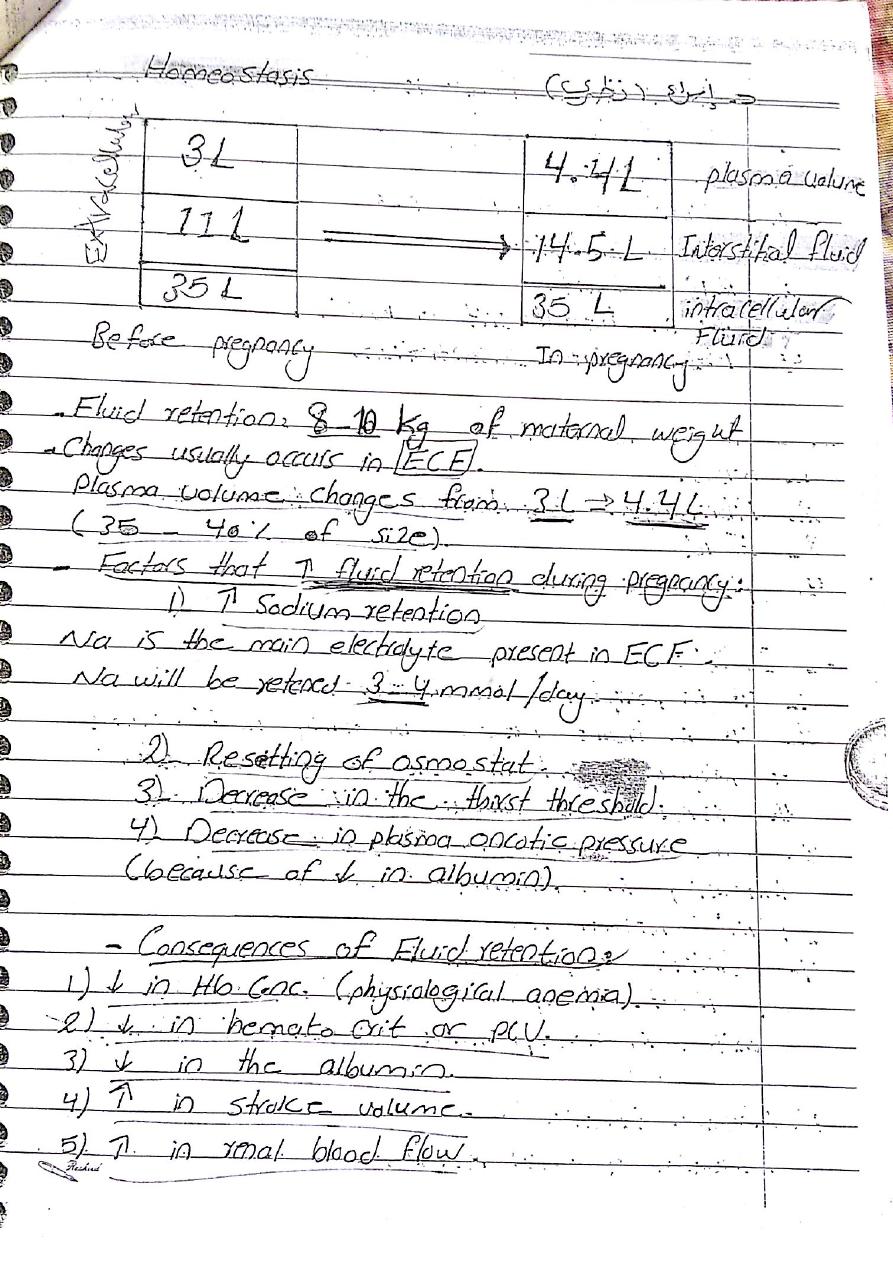 Homeostasis
Extracellular
3L
4.4L
plasma volume
11L
14.5 L
Interstitial fluid
35 L
35 L
intracellular
Fluid
Before pregnancy
In pregnancy
- Fluid retention: 8-10 kg of maternal weight
- Changes usually occurs in ECF.
Plasma volume changes from 3L → 4.4L
(35 - 40% of size).
- Factors that ↑ fluid retention during pregnancy:
1) ↑ Sodium retention
Na is the main electrolyte present in ECF.
Na will be retened 3-4 mmol/day
2) Resetting of osmostat.
3) Decrease in the thirst threshold.
4) Decrease in plasma oncotic pressure
(because of ↓ in albumin).
- Consequences of Fluid retention:
1) ↓ in Hb Conc. (physiological anemia).
2) ↓ in hematocrit or PCV.
3) ↓ in the albumin.
4) ↑ in stroke volume.
5) ↑ in renal blood flow.